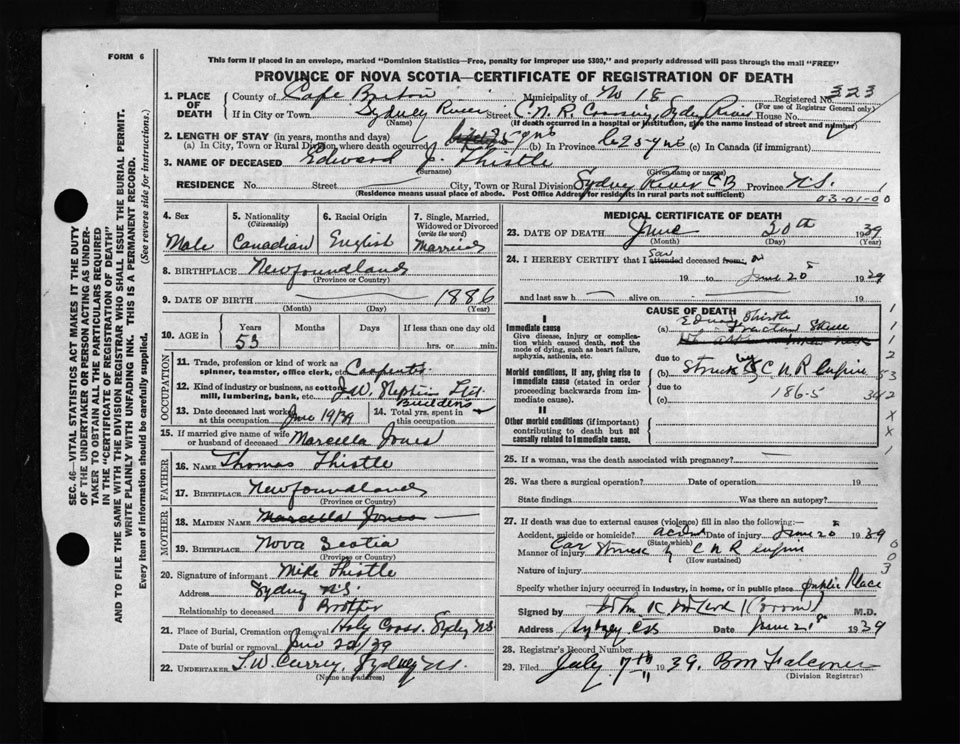 FORM 6
This form if placed in an envelope, marked "Dominion Statistics—Free, penalty for improper use $300," and properly addressed will pass through the mail "FREE"
PROVINCE OF NOVA SCOTIA—CERTIFICATE OF REGISTRATION OF DEATH
SEC. 46—VITAL STATISTICS ACT MAKES IT THE DUTY
OF THE UNDERTAKER OR PERSON ACTING AS UNDER-
TAKER TO OBTAIN ALL THE PARTICULARS REQUIRED
IN THE "CERTIFICATE OF REGISTRATION OF DEATH"
AND TO FILE THE SAME WITH THE DIVISION REGISTRAR WHO SHALL ISSUE THE BURIAL PERMIT.
WRITE PLAINLY WITH UNFADING INK. THIS IS A PERMANENT RECORD.
Every item of information should be carefully supplied. (See reverse side for instructions.)
1. PLACE OF DEATH County of Cape Breton Municipality of No 18 Registered No. 323
(For use of Registrar General only)
If in City or Town Sydney River C.N.R. Crossing, Sydney River House No.
(Name) (If death occurred in a hospital or institution, give the name instead of street and number)
2. LENGTH OF STAY (in years, months and days)
(a) In City, Town or Rural Division where death occurred 25 yrs (b) In Province 25 yrs (c) In Canada (if immigrant)
3. NAME OF DECEASED Edward J. Thistle
(Surname) (Given name or names)
RESIDENCE No. Street City, Town or Rural Division Sydney River CB Province N.S.
(Residence means usual place of abode. Post Office Address for residents in rural parts not sufficient)
03-01-00
4. Sex Male
5. Nationality (Citizenship) Canadian
6. Racial Origin English
7. Single, Married, Widowed or Divorced (write the word) Married
8. BIRTHPLACE Newfoundland
(Province or Country)
9. DATE OF BIRTH 1886
(Month) (Day) (Year)
10. AGE in Years Months Days If less than one day
53 hrs. or min.
OCCUPATION
11. Trade, profession or kind of work as spinner, teamster, office clerk, etc. Carpenter
12. Kind of industry or business, as cotton mill, lumbering, bank, etc. J.W. Stephens Ltd Builders
13. Date deceased last worked at this occupation June 19/39
14. Total yrs. spent in this occupation
15. If married give name of wife or husband of deceased Marcella Jones
FATHER
16. NAME Thomas Thistle
17. BIRTHPLACE Newfoundland
(Province or Country)
MOTHER
18. MAIDEN NAME Marcella Jones
19. BIRTHPLACE Nova Scotia
(Province or Country)
20. Signature of informant Mike Thistle
Address Sydney N.S.
Relationship to deceased Brother
21. Place of Burial, Cremation or Removal Holy Cross. Sydney N.S.
Date of burial or removal June 22/39
22. UNDERTAKER T.W. Curry, Sydney N.S.
(Name and address)
MEDICAL CERTIFICATE OF DEATH
23. DATE OF DEATH June 20th 1939
(Month) (Day) (Year)
24. I HEREBY CERTIFY that I saw attended deceased from: on
19 to June 20th 1939
and last saw h alive on 19
CAUSE OF DEATH
I
Immediate cause
Give disease, injury or complication which caused death, not the mode of dying, such as heart failure, asphyxia, asthenia, etc.
Morbid conditions, if any, giving rise to immediate cause (stated in order proceeding backwards from immediate cause).
II
Other morbid conditions (if important) contributing to death but not causally related to immediate cause.
Edward Thistle
(a) Fractured Skull
due to
(b) Struck by C N R Engine
due to
(c) 186-5
25. If a woman, was the death associated with pregnancy?
26. Was there a surgical operation? Date of operation 19
State findings Was there an autopsy?
27. If death was due to external causes (violence) fill in also the following:—
Accident, suicide or homicide? accident Date of injury June 20 1939
(State which)
Manner of injury Car struck by C N R engine
(How sustained)
Nature of injury
Specify whether injury occurred in industry, in home, or in public place public Place
Signed by M.D.
Address Sydney CB Date June 21st 1939
28. Registrar's Record Number
29. Filed July 7th 1939. B M Falconer
(Division Registrar)